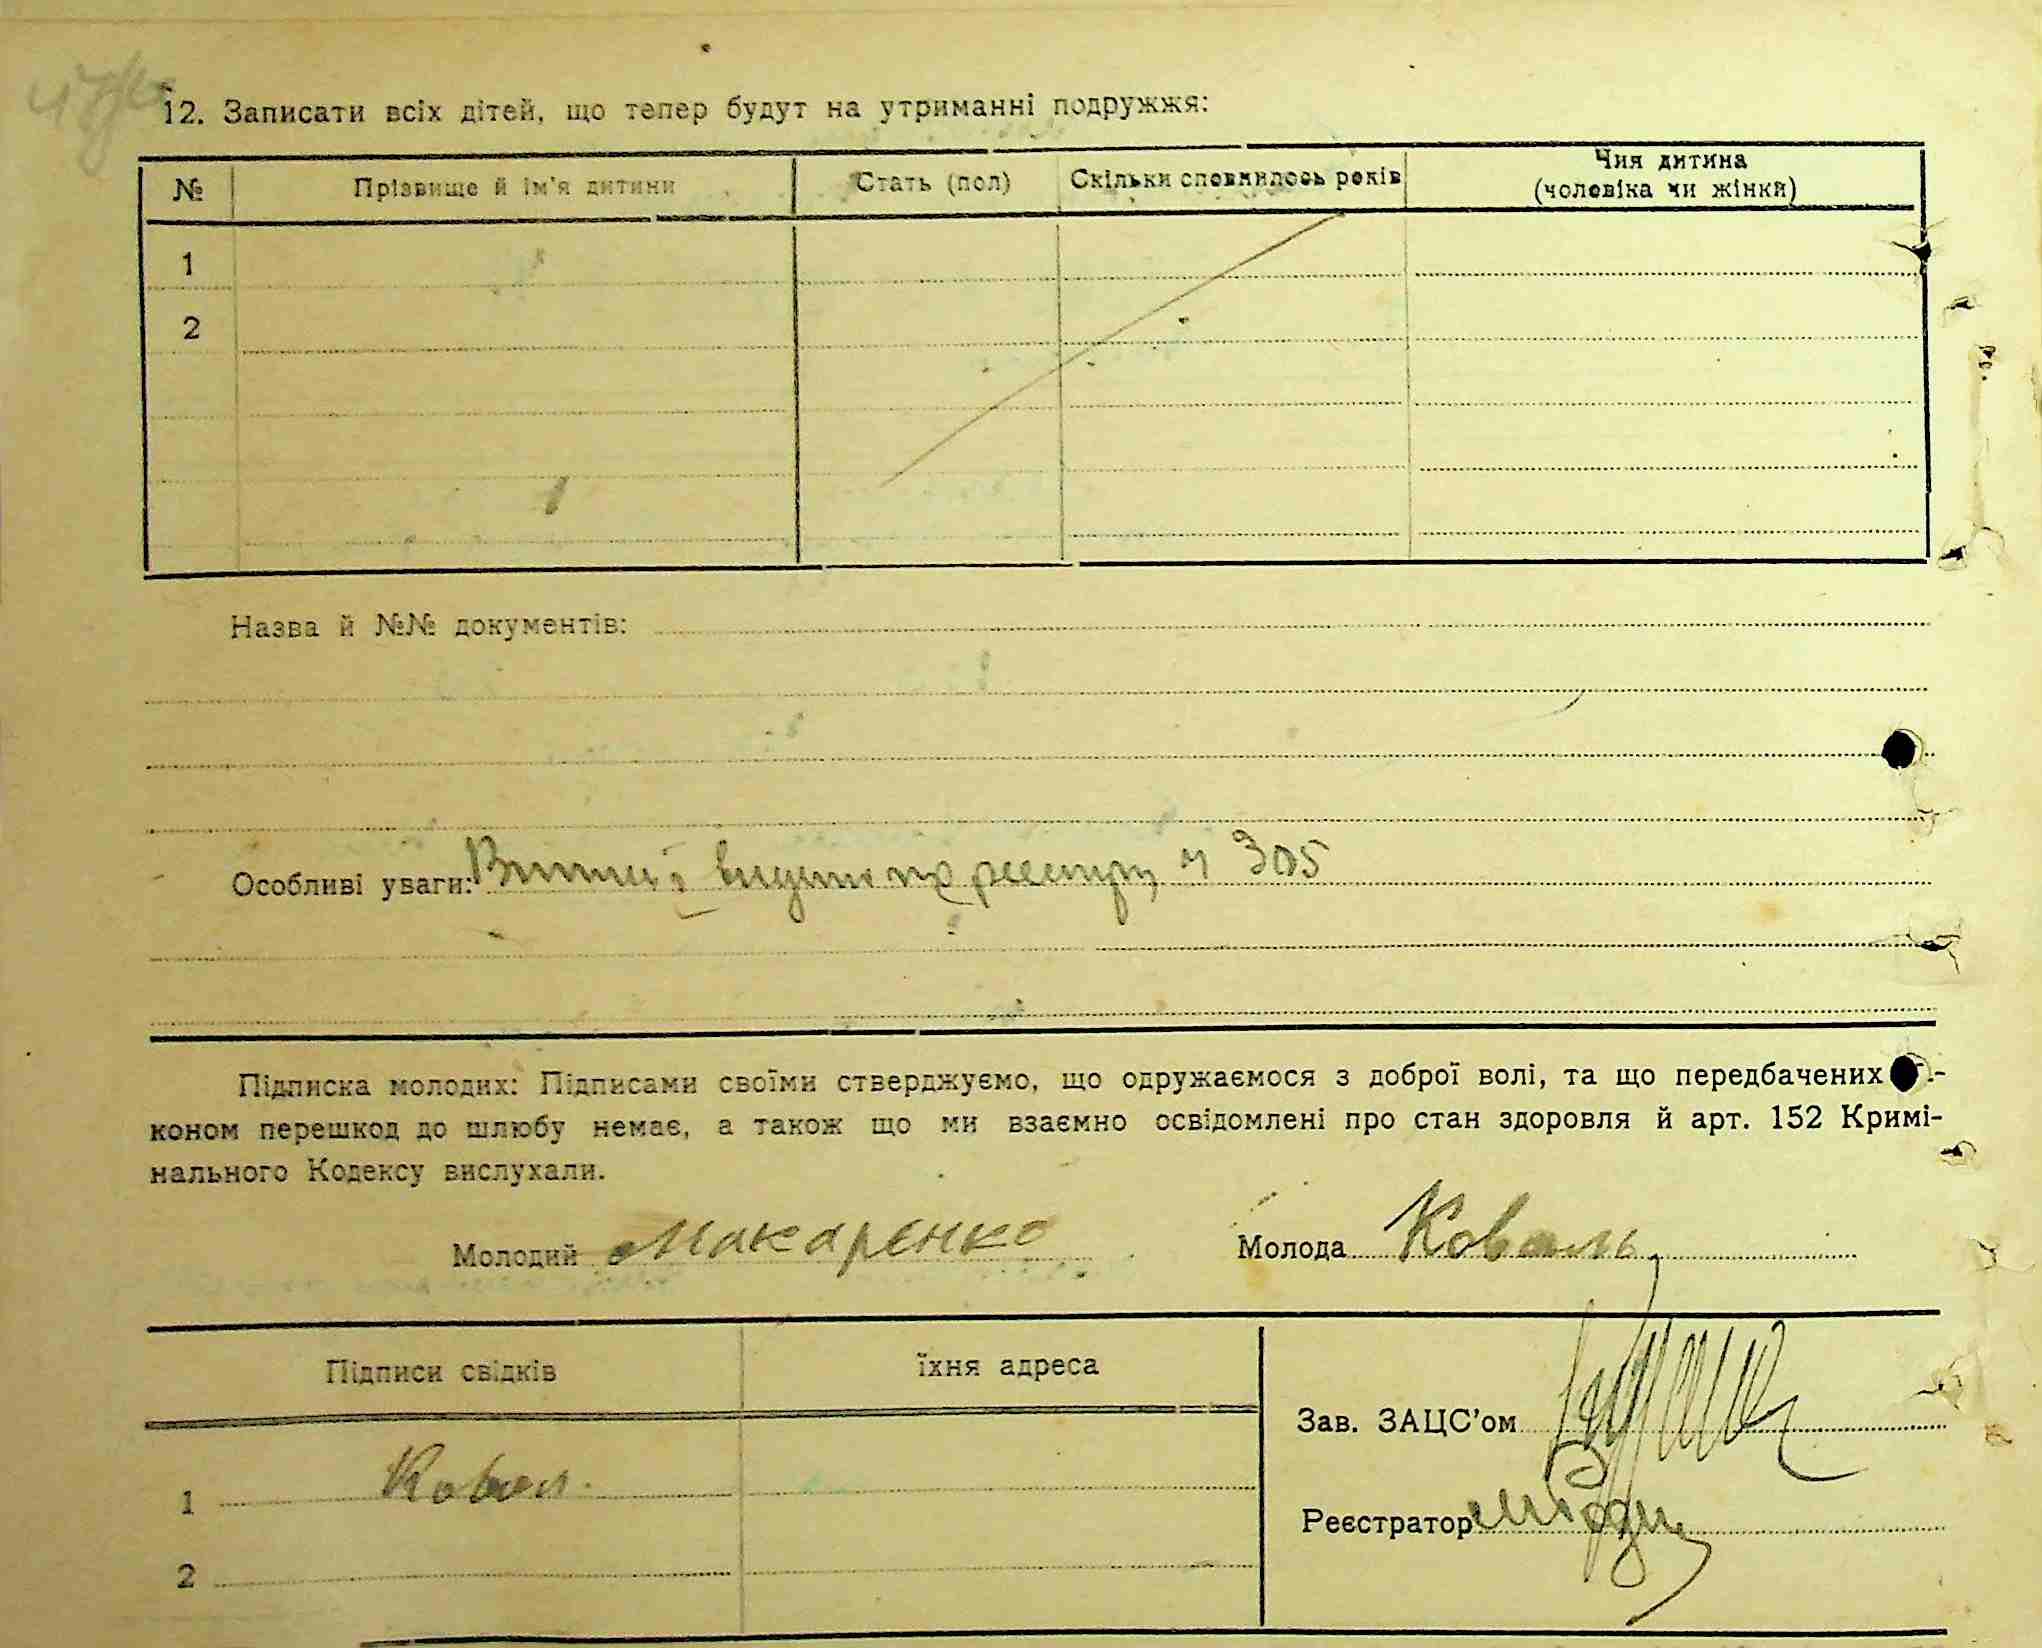 12. Записати всіх дітей, що тепер будут на утриманні подружжя:
№ Прізвище й ім'я дитини Стать (пол) Скільки сповнилось років Чия дитина (чоловіка чи жінки)
1
2
Назва й №№ документів:
Особливі уваги: реєстру ч 305
Підписка молодих: Підписами своїми стверджуємо, що одружаємося з доброї волі, та що передбачених
коном перешкод до шлюбу немає, а також що ми взаємно освідомлені про стан здоровля й арт. 152 Кримі-
нального Кодексу вислухали.
Молодий Макаренко Молода Коваль
Підписи свідків їхня адреса
Зав. ЗАЦС'ом
1 Ковал
Реєстратор
2